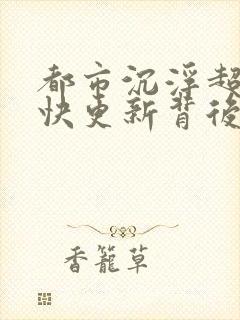 都市沉浮超
快更新背後
香籠草